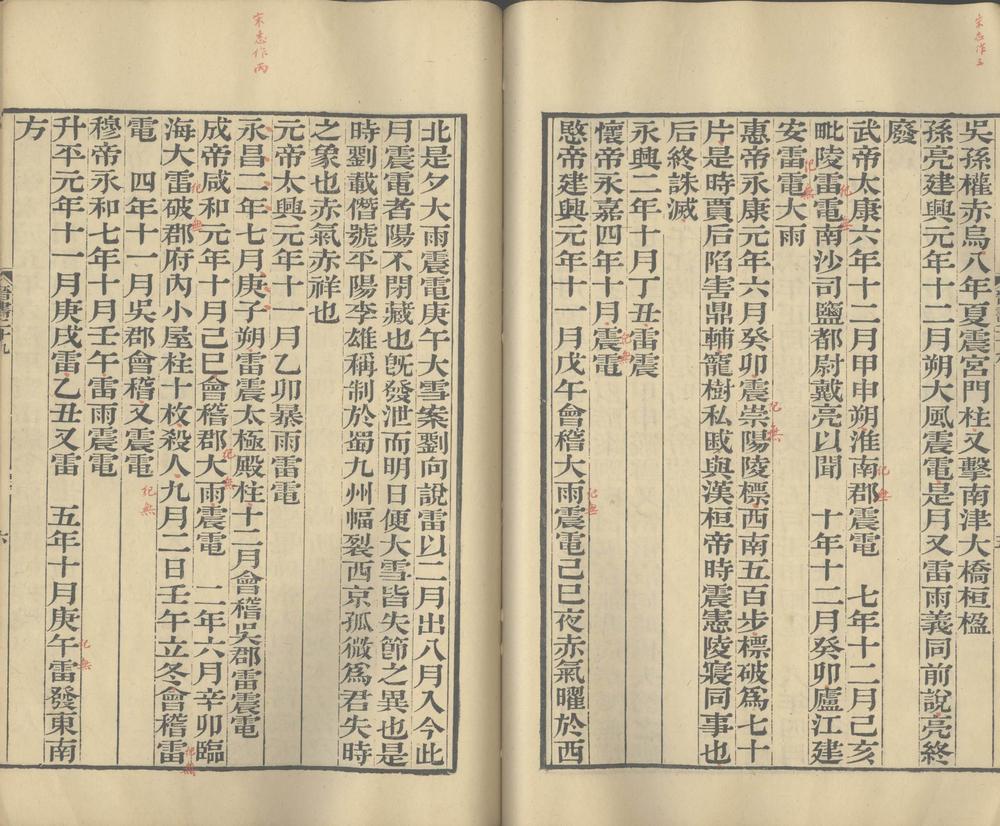 吳孫權赤烏八年夏震宮門柱又擊南津大橋桓楹
孫亮建興元年十二月朔大風震電是月又雷雨義同前說亮終
廢
武帝太康六年十二月甲申朔淮南郡震電　七年十二月己亥
毗陵雷電南沙司鹽都尉戴亮以聞　十年十二月癸卯廬江建
安雷電大雨
惠帝永康元年六月癸卯震崇陽陵標西南五百步標破爲七十
片是時賈后陷害鼎輔寵樹私戚與漢桓帝時震憲陵寢同事也
后終誅滅
永興二年十月丁丑雷震
懷帝永嘉四年十月震電
愍帝建興元年十一月戊午會稽大雨震電己巳夜赤氣曜於西
北是夕大雨震電庚午大雪案劉向說雷以二月出八月入今此
月震電者陽不閉藏也旣發泄而明日便大雪皆失節之異也是
時劉載僭號平陽李雄稱制於蜀九州幅裂西京孤微爲君失時
之象也赤氣赤祥也
元帝太興元年十一月乙卯暴雨雷電
永昌二年七月庚子朔雷震太極殿柱十二月會稽吳郡雷震電
成帝咸和元年十月己巳會稽郡大雨震電　二年六月辛卯臨
海大雷破郡府內小屋柱十枚殺人九月二日壬午立冬會稽雷
電　四年十一月吳郡會稽又震電
穆帝永和七年十月壬午雷雨震電
升平元年十一月庚戌雷乙丑又雷　五年十月庚午雷發東南
方
宋志作五
宋志作丙
紀無
紀無
紀無
紀無
紀無
紀無
紀無
紀無
紀無
紀無
紀無
晉書二十九
六